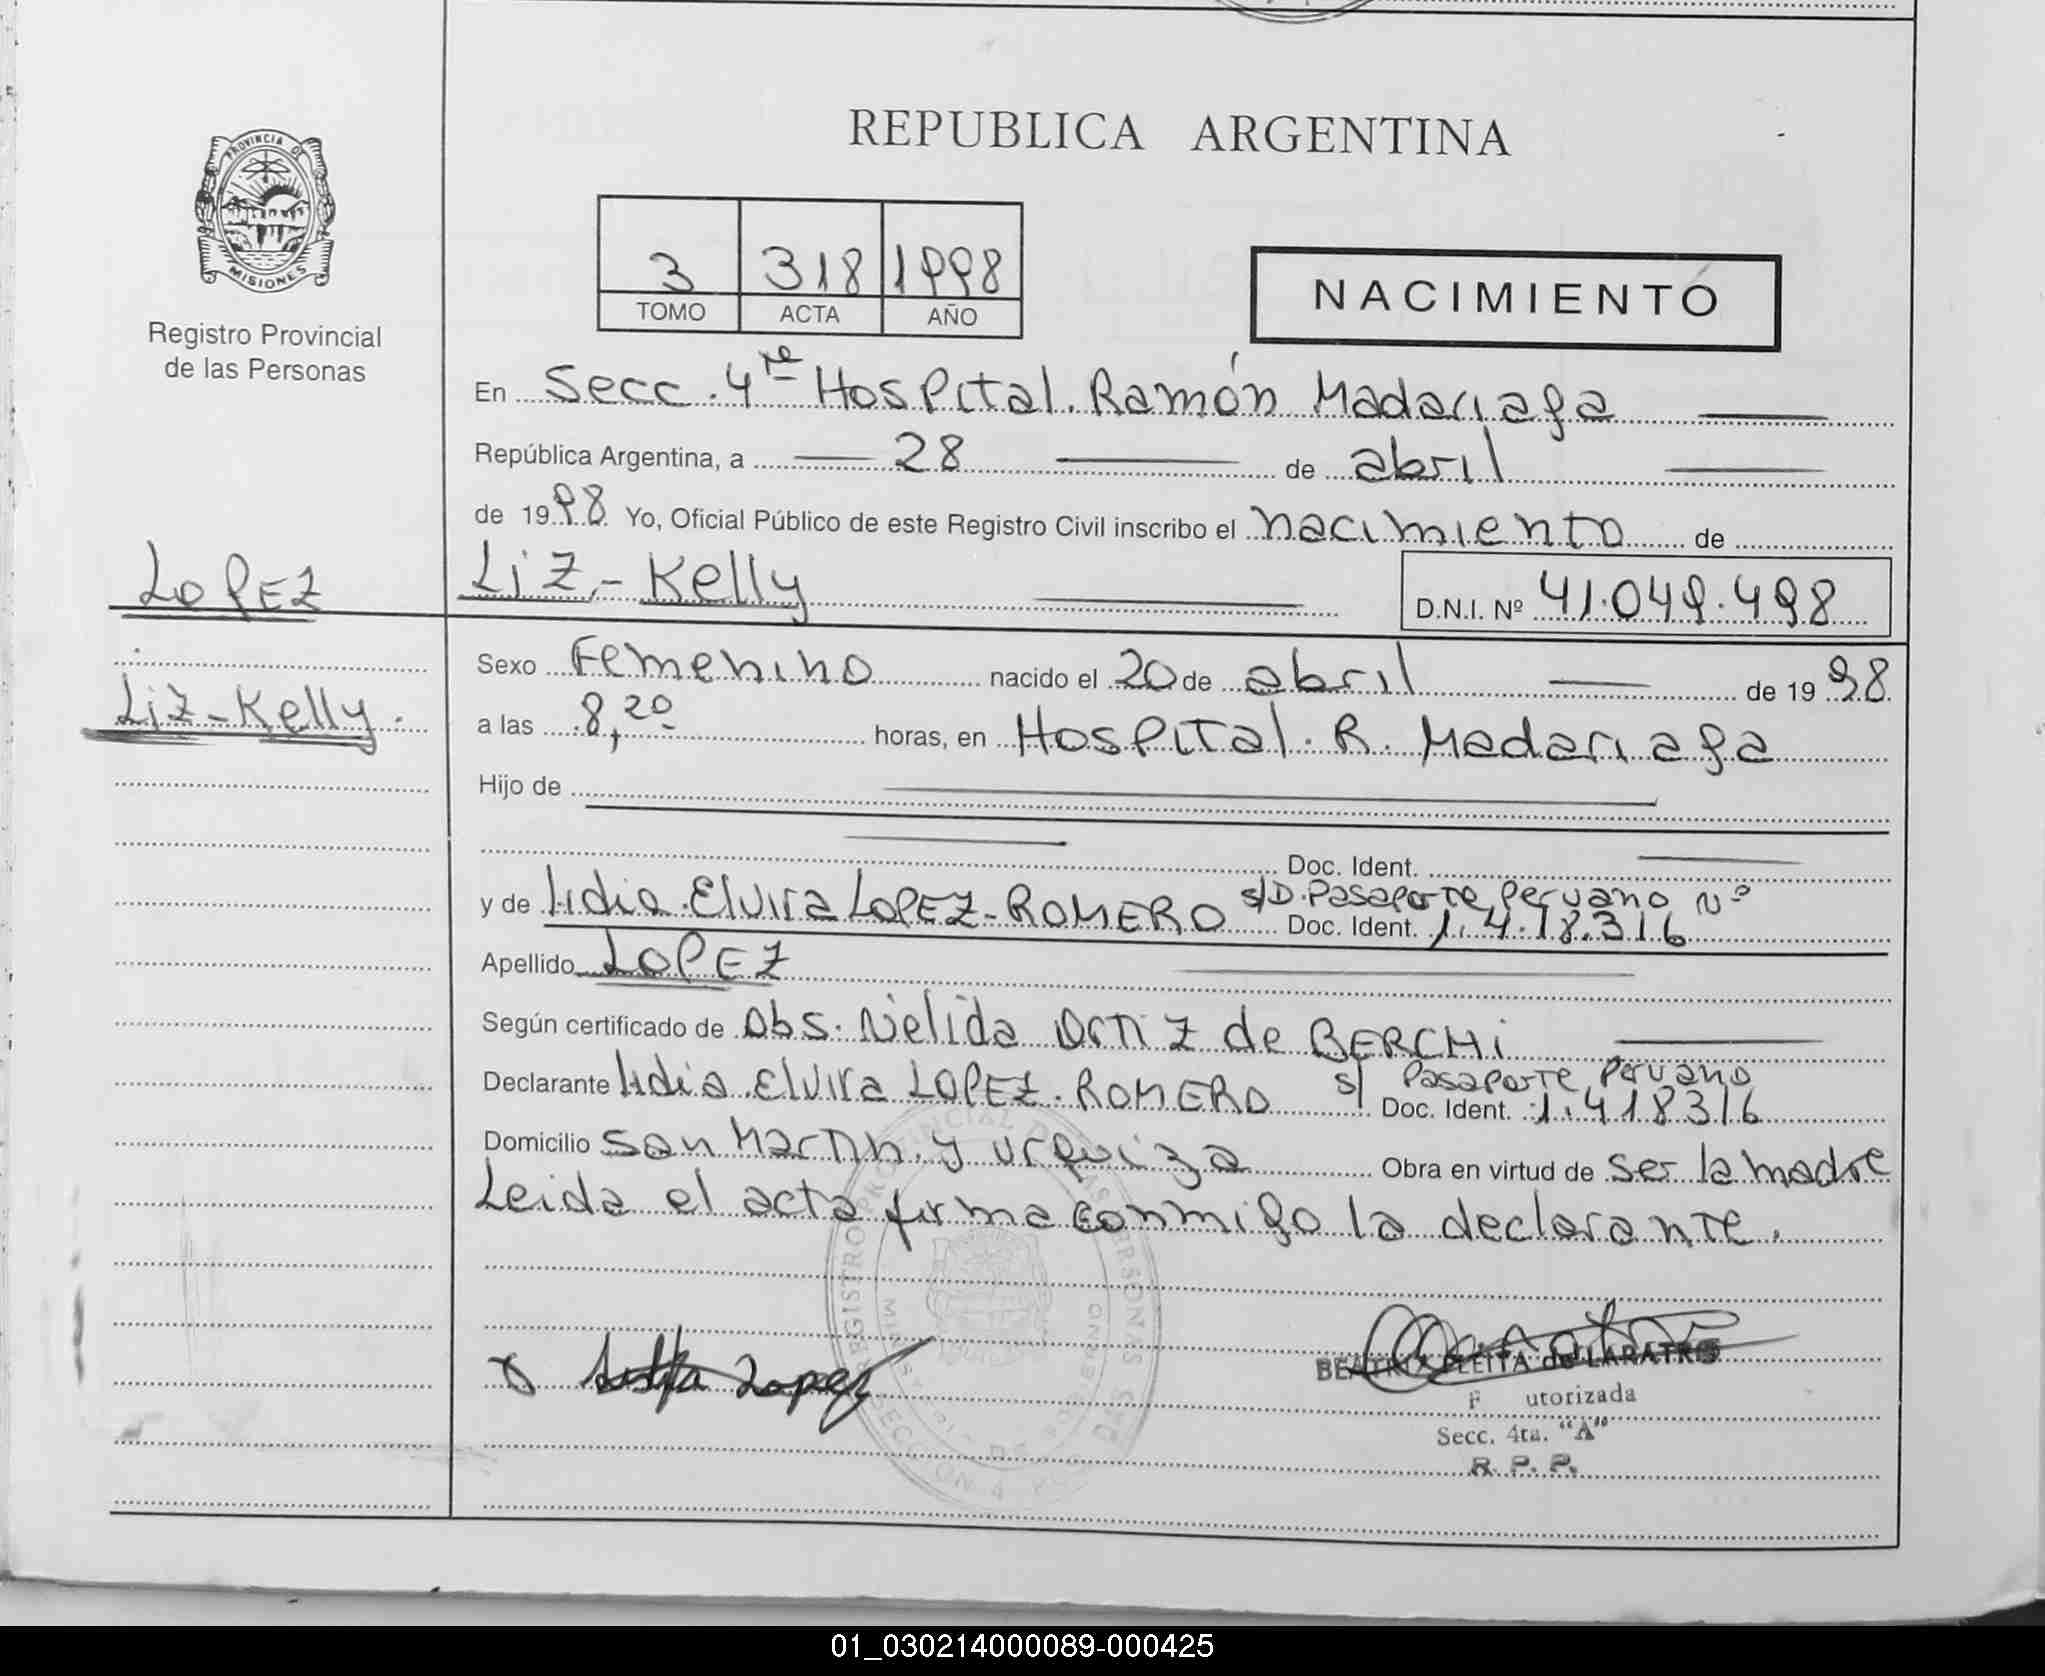 REPUBLICA ARGENTINA
PROVINCIA DE
MISIONES
Registro Provincial
de las Personas
3 318 1998
TOMO ACTA AÑO
NACIMIENTO
En Secc. 4ta Hospital. Ramón Madariaga
República Argentina, a 28 de abril
de 1998 Yo, Oficial Público de este Registro Civil inscribo el nacimiento de
LOPEZ
Liz-Kelly
D.N.I. Nº 41.049.498
Sexo Femenino nacido el 20 de abril de 1998
Liz-Kelly.
a las 8,20 horas, en Hospital. R. Madariaga
Hijo de
Doc. Ident.
y de Lidia Elvira LOPEZ-ROMERO s/D. Pasaporte Peruano Nº
Doc. Ident. 1.418.316
Apellido LOPEZ
Según certificado de Obs. Nélida Ortiz de BERCHi
Declarante Lidia Elvira LOPEZ-ROMERO s/ Pasaporte Peruano
Doc. Ident. 1.418316
Domicilio San Martin y Urquiza Obra en virtud de ser la madre
Leida el acta firma conmigo la declarante.
REGISTRO PROVINCIAL DE LAS PERSONAS
SECCION 4
Lopez
BEATRIX PLEITA de LARATRO
F utorizada
Secc. 4ta. "A"
R. P. P.
01_030214000089-000425